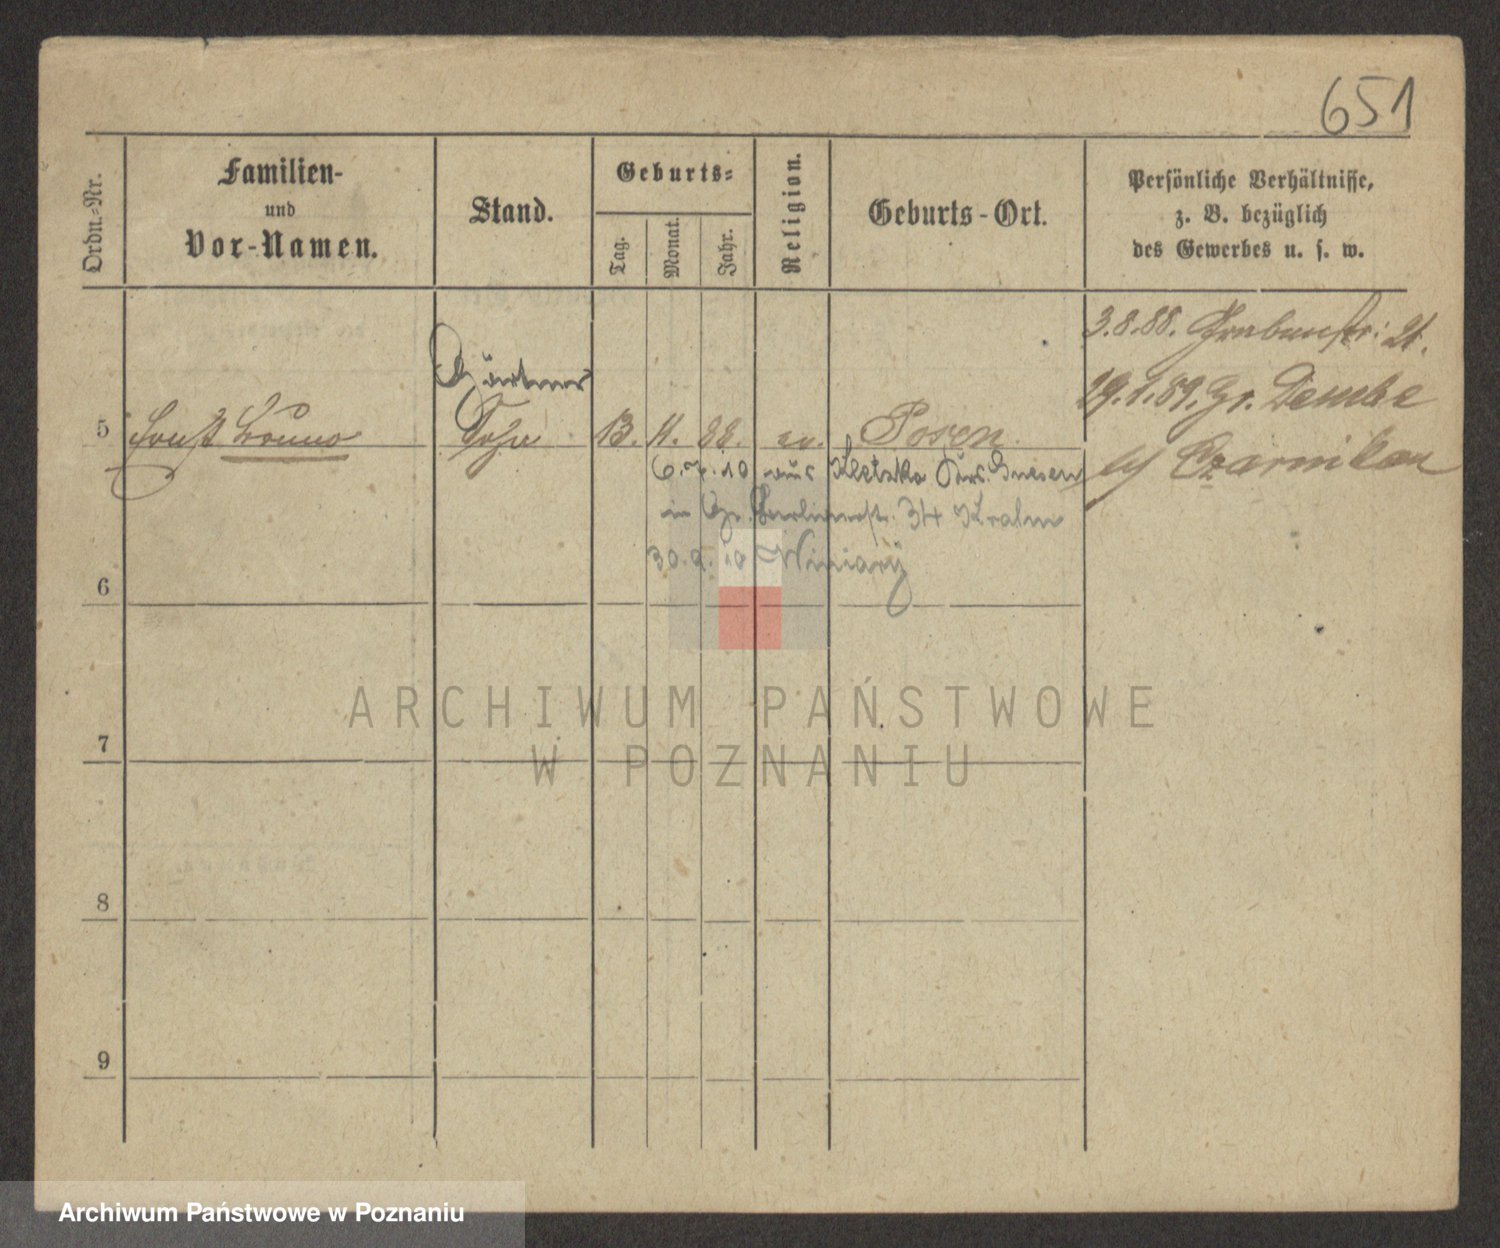 651
Ordn.-Nr.
Familien-
und
Vor-Namen.
Stand.
Geburts-
Tag.
Monat.
Jahr.
Religion.
Geburts-Ort.
Persönliche Verhältnisse,
z. B. bezüglich
des Gewerbes u. s. w.
3.8.88. Grabenstr: 21.
Gärtner
29.1.89. Gr. Dembe
5 Ernst Bruno Sohn 13. 11. 88. ev. Posen
Czarnikau
6.7.10 aus Kletzko Krs. Gnesen
in Gr. Berlinerstr. 34
30.9.10 Winiary
6
7
8
9
ARCHIWUM PAŃSTWOWE
W POZNANIU
Archiwum Państwowe w Poznaniu